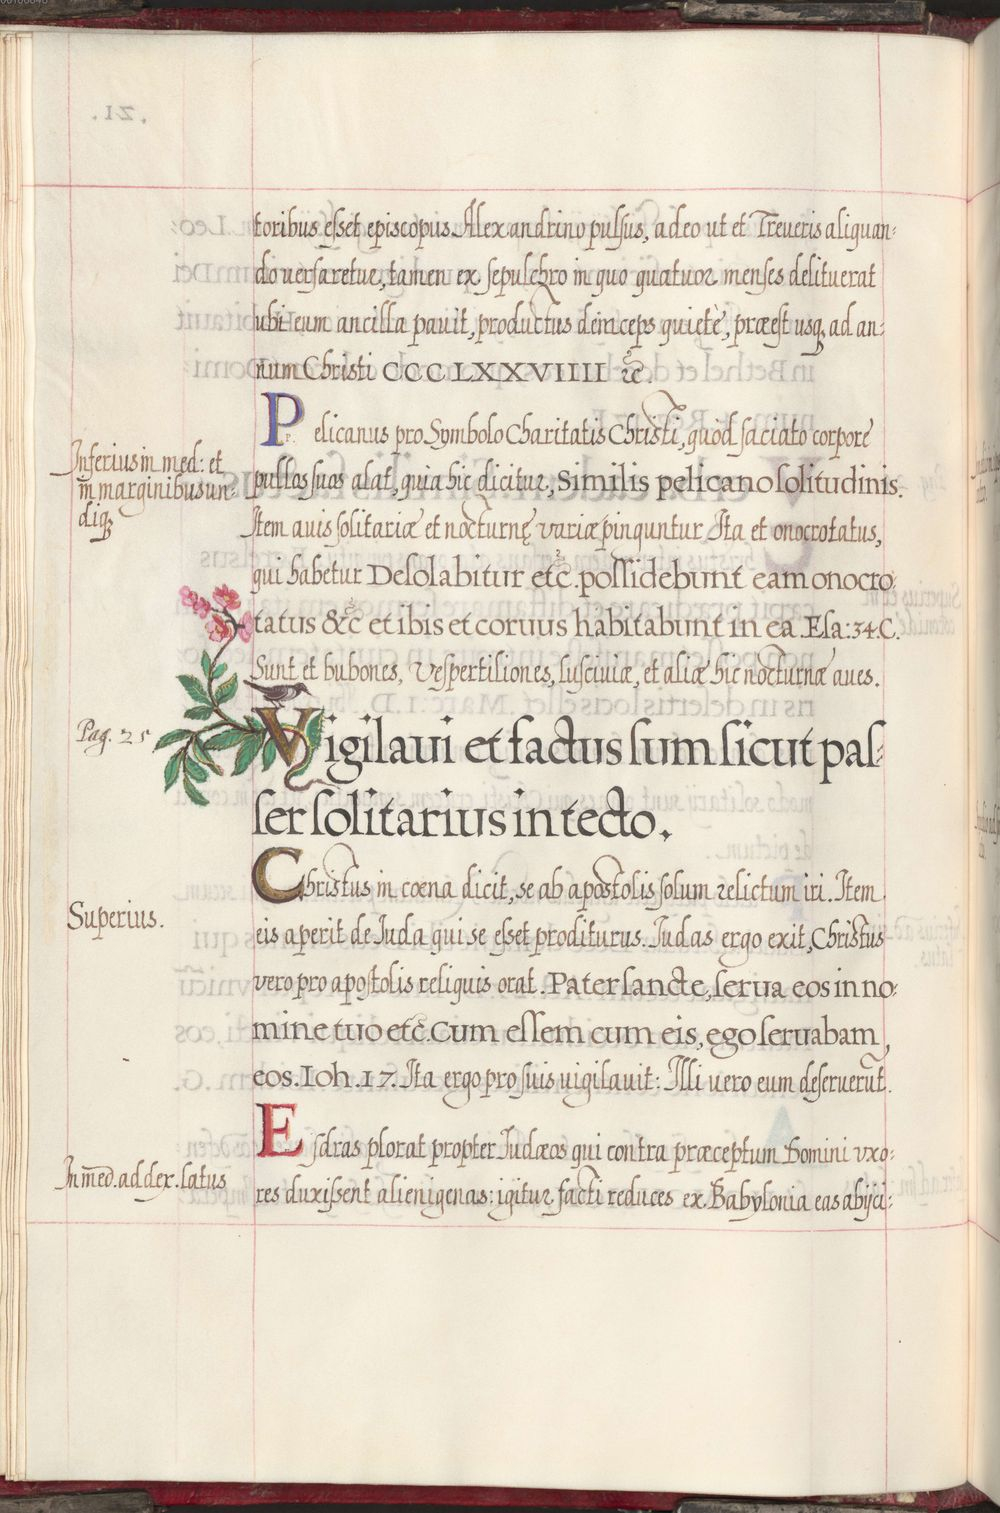 toribus esset episcopus Alexandrino pulsus, adeo ut et Treueris aliquan-
do uersaretur, tamen ex sepulchro in quo quatuor menses delituerat
ubi eum ancilla pauit, productus deinceps quietè, præest usq, ad an-
num Christi CCCLXXVIIII &c.
Pelicanus pro Symbolo Charitatis Christi, quòd saciato corpore
Inferius in med: et
in marginibus un-
diq,
pullos suos alat, quia hic dicitur, Similis pelicano solitudinis.
Item auis solitariæ et nocturnę variæ pinguntur Ita et onocrotatus,
qui habetur Desolabitur etc. possidebunt eam onocro-
tatus &c et ibis et coruus habitabunt in ea. Esa: 34. C.
Sunt et bubones, Vespertiliones, lusciuiæ, et aliæ hic nocturnæ aues.
Pag. 25
Vigilaui et factus sum sicut pas-
ser solitarius in tecto.
Superius.
Christus in cœna dicit, se ab apostolis solum relictum iri. Item
eis aperit de Iuda qui se esset proditurus. Iudas ergo exit, Christus
vero pro apostolis reliquis orat. Pater sancte, serua eos in no-
mine tuo etc. Cum essem cum eis, ego seruabam
eos. Ioh. 17. Ita ergo pro suis uigilauit: Illi vero eum deseruerũt.
In med. ad dex. latus
Esdras plorat propter Iudæos qui contra præceptum Domini vxo-
res duxissent alienigenas: igitur facti reduces ex Babylonia eas abijci-